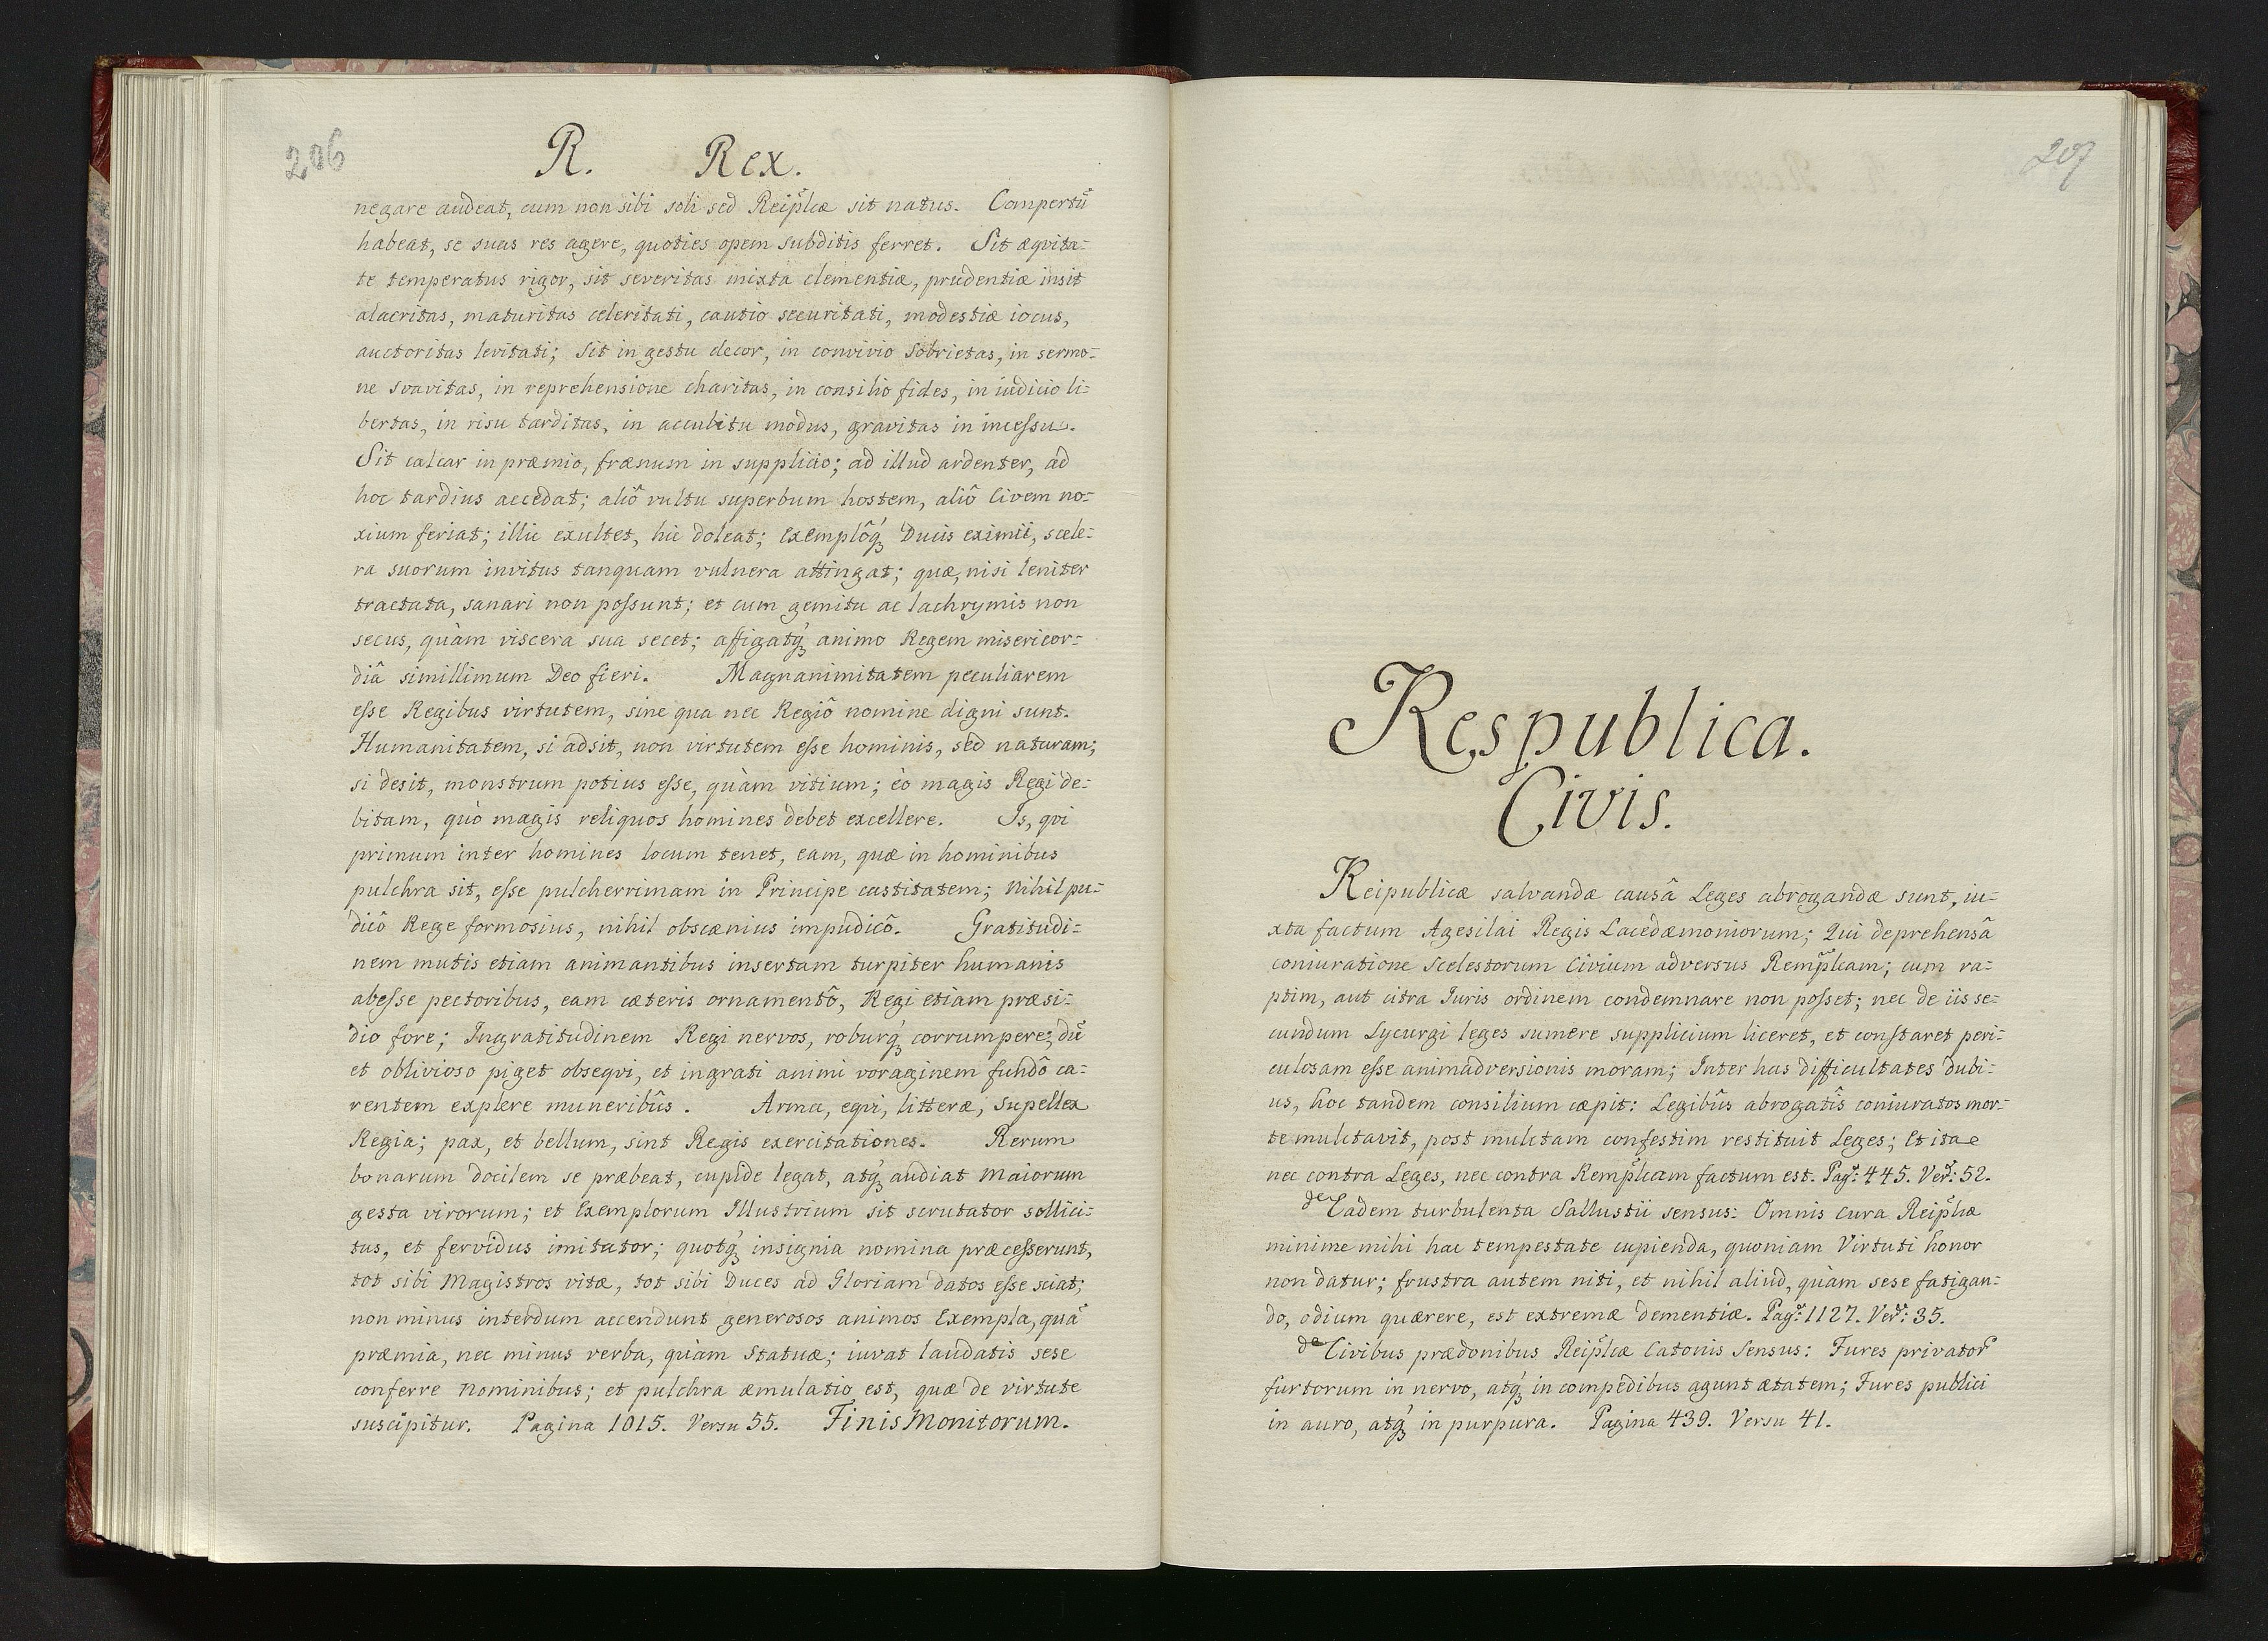 206
R. Rex.
negare audeat, cum non sibi soli sed Reip̃licæ sit natus. Compertũ
habeat, se suas res agere, quoties opem subditis ferret. Sit æqvita=
te temperatus rigor, sit severitas mixta clementiæ, prudentiæ insit
alacritas, maturitas celeritati, cautio securitati, modestiæ iocus,
auctoritas levitati; Sit in gestu decor, in convivio Sobrietas, in sermo=
ne svavitas, in reprehensione charitas, in consilio fides, in iudicio li=
bertas, in risu tarditas, in accubitu modus, gravitas in incessu.
Sit calcar in præmio, frænum in supplicio; ad illud ardenter, ad
hoc tardius accedat; aliô vultu superbum hostem, aliô Civem no=
xium feriat; illic exultet, hic doleat; exemplôq́ꝫ Ducis eximii, scele=
ra suorum invitus tanquam vulnera attingat; quæ, nisi leniter
tractata, sanari non possunt; et cum gemitu ac lachrymis non
secus, quàm viscera sua secet; affigatq́ꝫ animo Regem misericor=
diâ simillimum Deo fieri. Magnanimitatem peculiarem
esse Regibus virtutem, sine qua nec Regiô nomine digni sunt.
Humanitatem, si adsit, non virtutem esse hominis, sed naturam;
si desit, monstrum potius esse, quàm vitium; èo magis Regi de=
bitam, quò magis reliquos homines debet excellere. Is, qvi
primum inter homines locum tenet, eam, quæ in hominibus
pulchra sit, esse pulcherrimam in Principe castitatem; Nihil pu=
dicô Rege formosius, nihil obscænius impudicô. Gratitudi=
nem mutis etiam animantibus insertam turpiter humanis
abesse pectoribus, eam cæteris ornamentô, Regi etiam præsi=
dio fore; Ingratitudinem Regi nervos, roburq́ꝫ corrumpere; dũ
et oblivioso piget obseqvi, et ingrati animi voraginem fundô ca=
rentem explere muneribûs. Arma, eqvi, litteræ, supellex
Regia; pax, et bellum, sint Regis exercitationes. Rerum
bonarum docilem se præbeat, cupide legat, atq́ꝫ audiat Maiorum
gesta virorum; et Exemplorum Illustrium sit scrutator sollici=
tus, et fervidus imitator; quotq́ꝫ insignia nomina præcesserunt,
tot sibi Magistros vitæ, tot sibi Duces ad Gloriam datos esse sciat;
non minus interdum accendunt generosos animos Exempla, quã
præmia, nec minus verba, quàm Statuæ; iuvat laudatis sese
conferre Nominibus; et pulchra æmulatio est, quæ de virtute
suscipitur. Pagina 1015. Versu 55. Finis Monitorum.
207
Respublica.
Civis.
Reipublicæ salvandæ causâ Leges abrogandæ sunt, iu=
xta factum Agesilai Regis Lacedæmoniorum; Qui deprehensâ
coniuratione Scelestorum Civium adversus Remp̃licam; cum ra=
ptim, aut citra Iuris ordinem condemnare non posset; nec de iis se=
cundum Lycurgi leges sumere supplicium liceret, et constaret peri=
culosam esse animadversionis moram; Inter has difficultates dubi=
us, hoc tandem consilium cæpit: Legibûs abrogatîs coniuratos mor=
te mulctavit, post mulctam confestim restituit Leges; Et ita
nec contra Leges, nec contra Remp̃licam factum est. Pag: 445. Ver: 52.
de Eadem turbulenta Sallustii sensus: Omnis cura Reip̃licæ
minime mihi hac tempestate cupienda, quoniam Virtuti honor
non datur; frustra autem niti, et nihil aliud, quàm sese fatigan=
do, odium quærere, est extremæ dementiæ. Pag: 1127. Ver: 35.
de Civibus prædonibus Reip̃licæ Catonis Sensus: Fures privator̃
furtorum in nervo, atq́ꝫ in compedibus agunt ætatem; Fures publici
in auro, atq́ꝫ in purpura. Pagina 439. Versu 41.